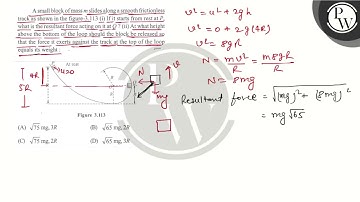 A small block of mass m slides along a smooth frictionless
track as shown in the figure 3.113 (i) If it starts from rest at P,
what is the resultant force acting on it at Q? (ii) At what height
above the bottom of the loop should the block be released so
that the force it exerts against the track at the top of the loop
equals its weight:
At rest
4R
5R
u=0
N
v
mg
Figure 3.113
(A) √75 mg, 3R (B) √65 mg, 2R
(C) √75 mg, 2R (D) √65 mg, 3R
v² = u² + 2gh
v² = 0 + 2g(4R)
v² = 8gR
N = mv²/R = m8gR/R
N = 8mg
Resultant force = √(mg)² + (8mg)²
= mg√65
PW